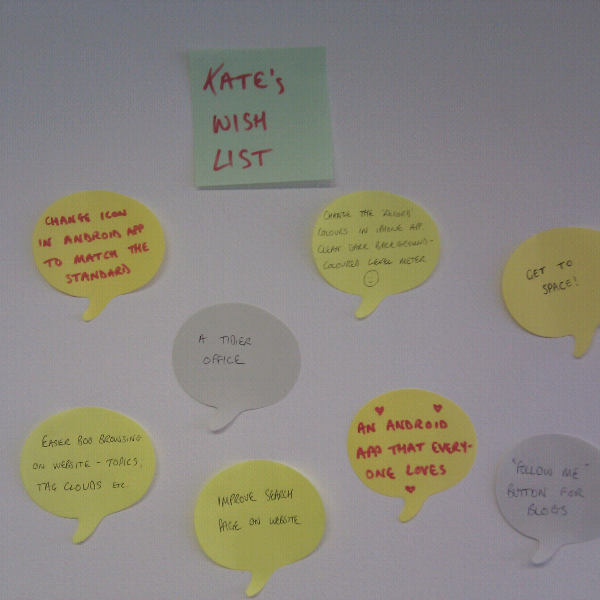 KATE'S
WISH
LIST
CHANGE ICON
IN ANDROID APP
TO MATCH THE
STANDARD
CHANGE THE RECORD
COLOURS IN IPHONE APP
CLEAN DARK BACKGROUND -
COLOURED LEVEL METER
GET TO
SPACE!
A TIDIER
OFFICE
EASIER BOO BROWSING
ON WEBSITE - TOPICS,
TAG CLOUDS ETC.
IMPROVE SEARCH
PAGE ON WEBSITE
AN ANDROID
APP THAT EVERY-
ONE LOVES
"FOLLOW ME"
BUTTON FOR
BLOGS